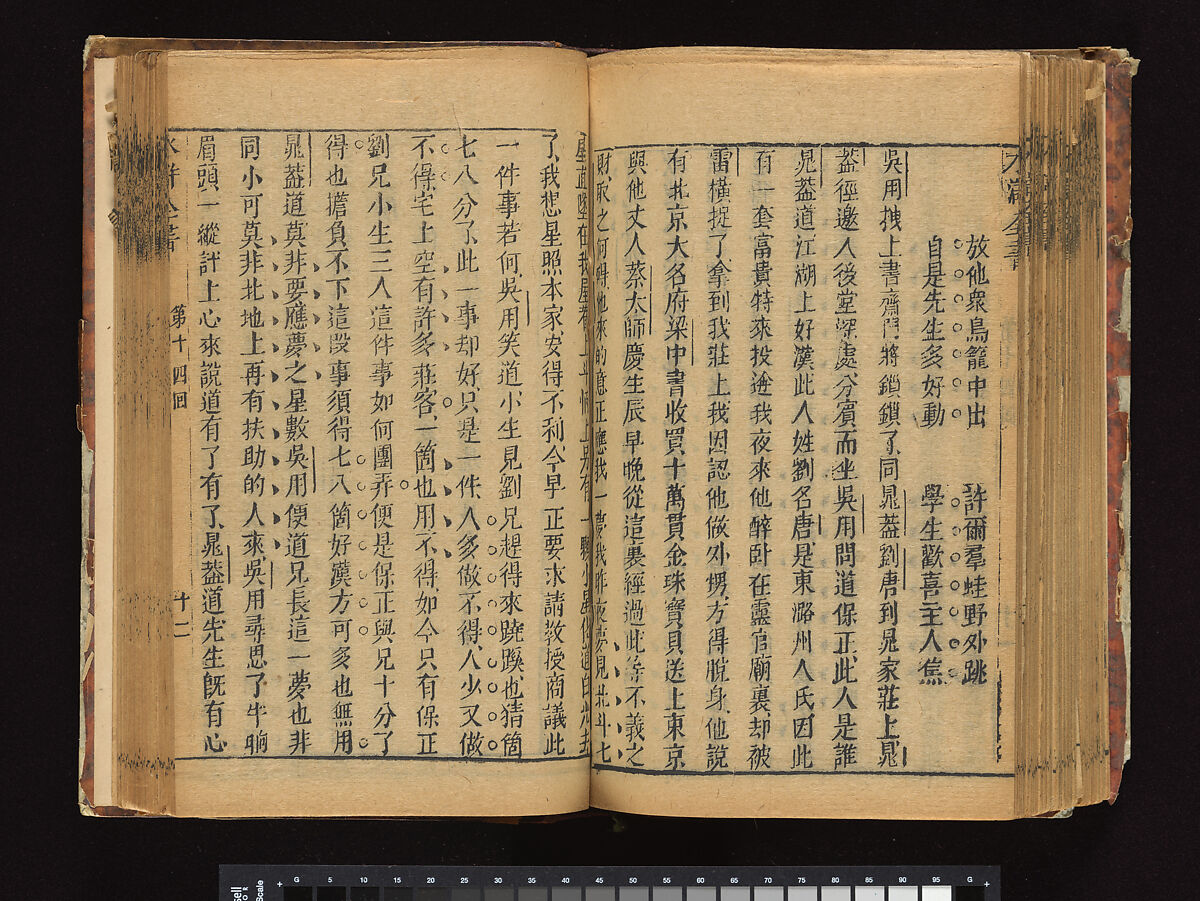 水滸全書
放他衆鳥籠中出　許爾羣蛙野外跳
自是先生多好動　學生歡喜主人焦
吳用拽上書齋門將鎖鎖了同晁葢劉唐到晁家莊上晁
葢徑邀入後堂深處分賔而坐吳用問道保正此人是誰
晁葢道江湖上好漢此人姓劉名唐是東潞州人氏因此
有一套富貴特來投逩我夜來他醉卧在靈官廟裏却被
雷橫捉了拿到我莊上我因認他做外甥方得脫身他說
有北京大名府梁中書收買十萬貫金珠寶貝送上東京
與他丈人蔡太師慶生辰早晚從這裏經過此等不義之
財取之何碍他來的意正應我一夢我昨夜夢見北斗七
星直墜在我屋脊上斗柄上另有一顆小星化道白光去
了我想星照本家安得不利今早正要求請教授商議此
一件事若何吳用笑道小生見劉兄趕得來蹺蹊也猜箇
七八分了此一事却好只是一件人多做不得人少又做
不得宅上空有許多莊客一箇也用不得如今只有保正
劉兄小生三人這件事如何團弄便是保正與兄十分了
得也擔負不下這段事須得七八箇好漢方可多也無用
晁葢道莫非要應夢之星數吳用便道兄長這一夢也非
同小可莫非北地上再有扶助的人來吳用尋思了半晌
眉頭一縱計上心來說道有了有了晁葢道先生旣有心
水滸全書　第十四回　十二
G 5 10 15 20 25 30 35 40 45 50 55 60 65 70 75 80 85 90 95 G